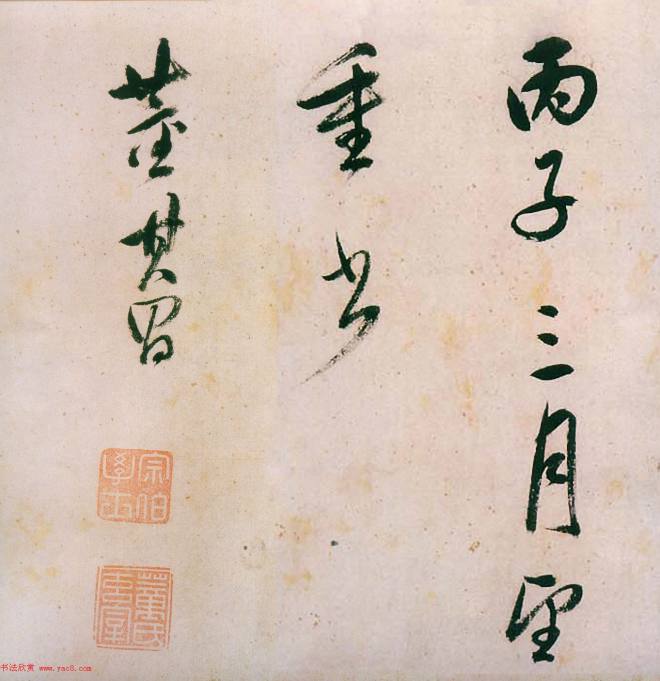 丙子三月望
重書
董其昌
宗伯學士
董氏玄宰
书法欣赏 www.yac8.com